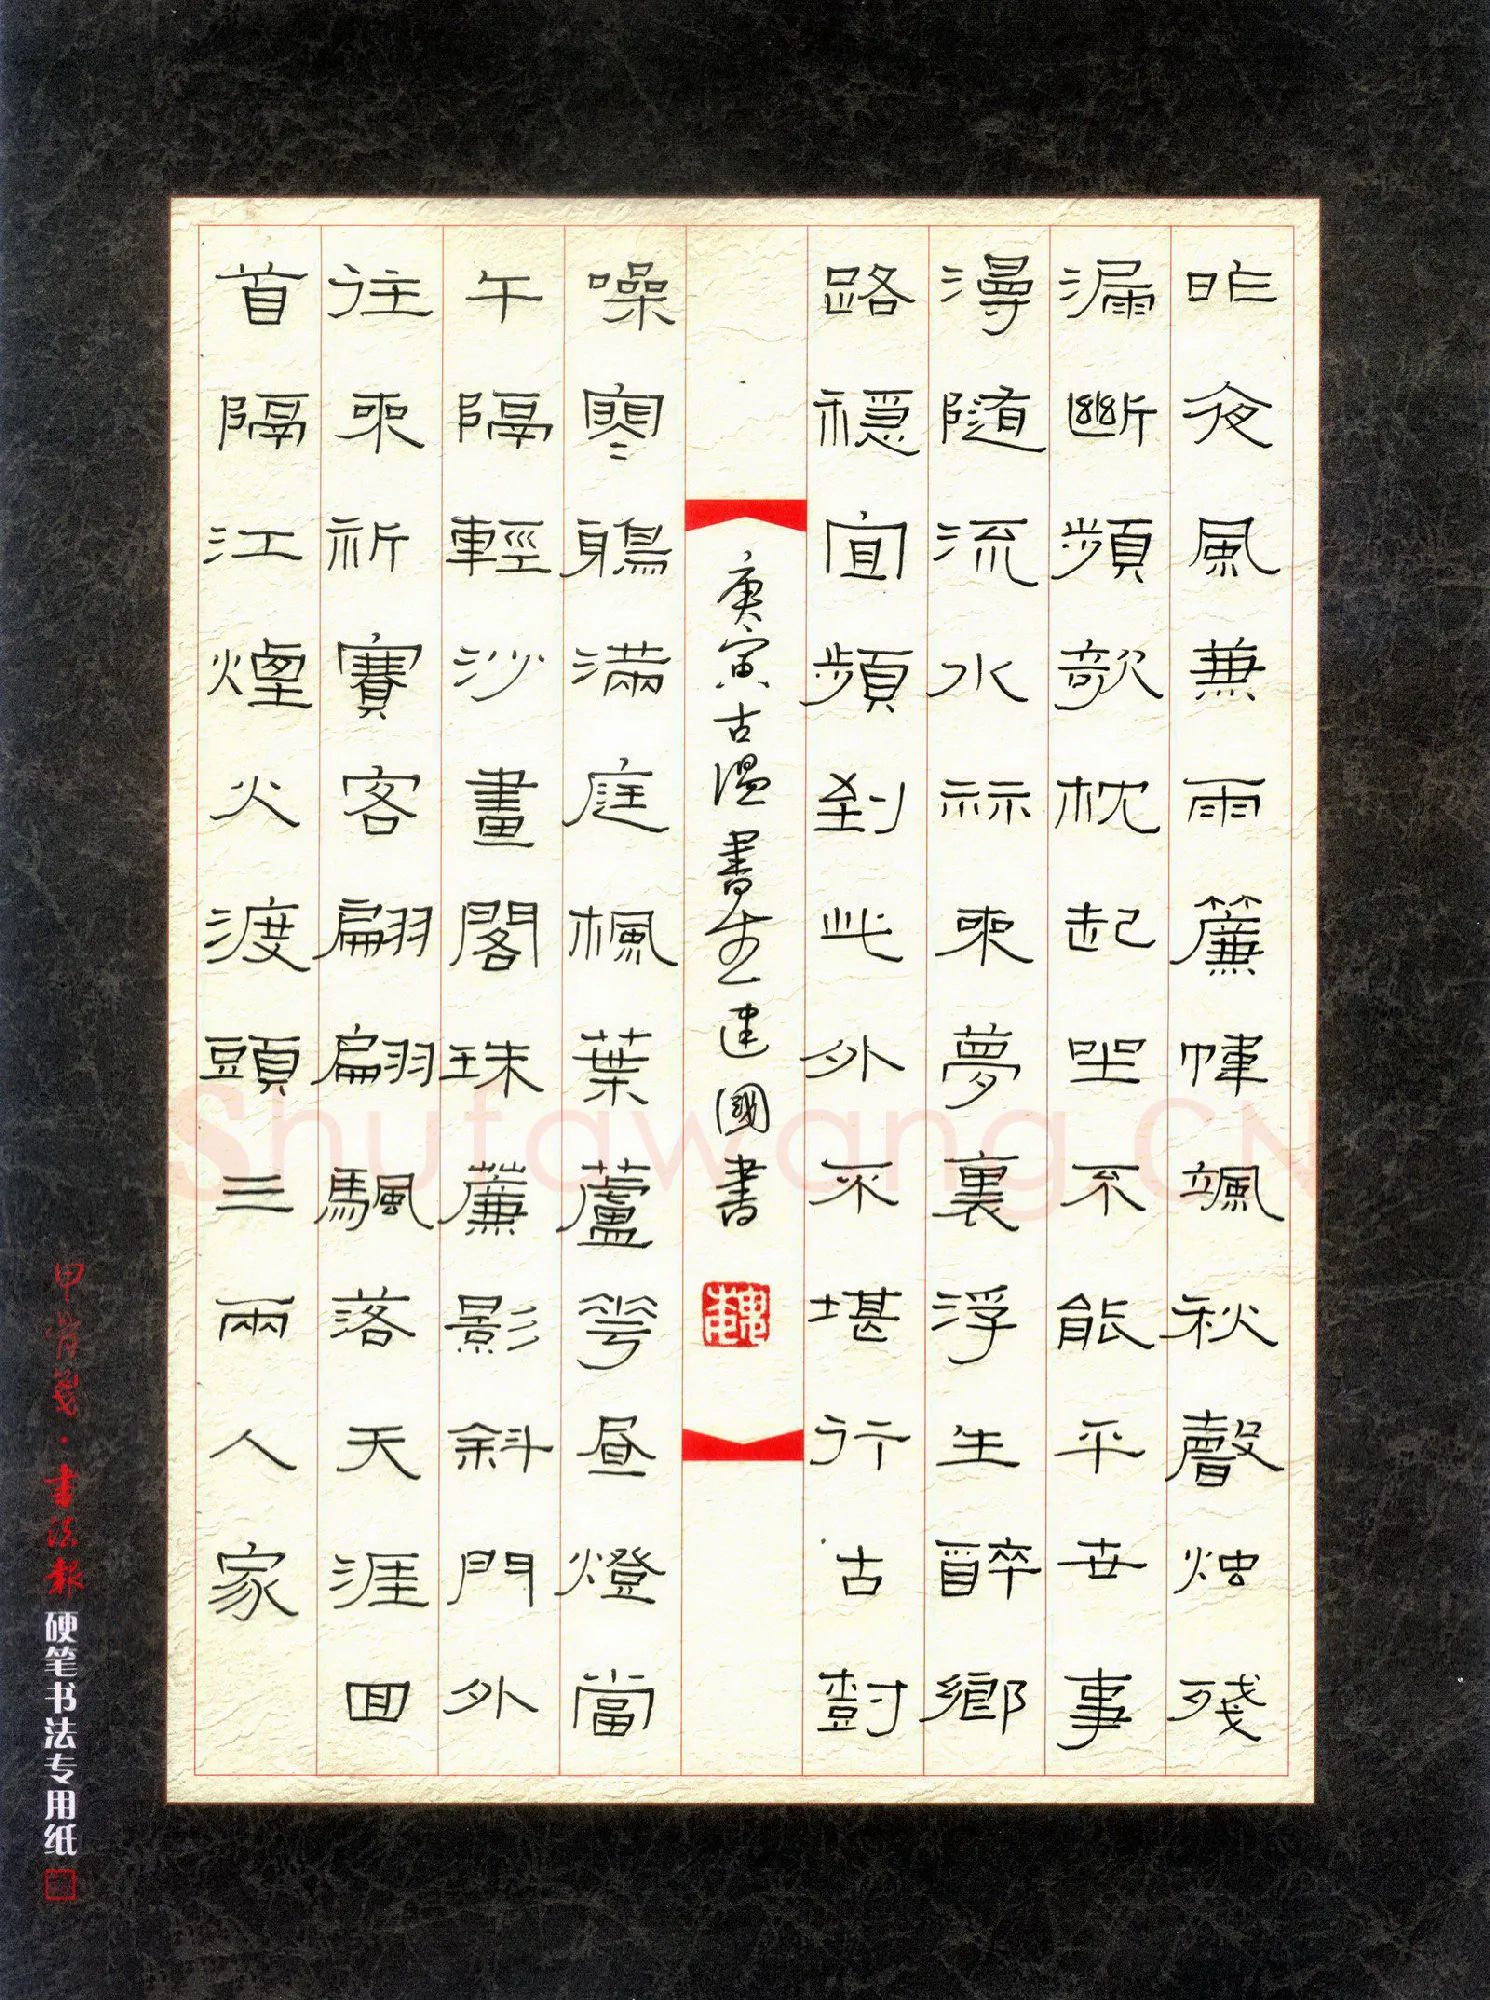 昨夜風兼雨簾幃颯秋聲烛殘
漏斷頻欹枕起坐不能平世事
漫隨流水祘來夢裏浮生醉鄉
路穩宜頻到此外不堪行古對
庚寅古溫書生建國書
噪寒鵶滿庭楓葉蘆花昼燈當
午隔輕沙畫閣珠簾影斜門外
往來祈賽客翩翩颿落天涯回
首隔江煙火渡頭三兩人家
甲骨箋·書法報硬笔书法专用纸
Shufawang.CN